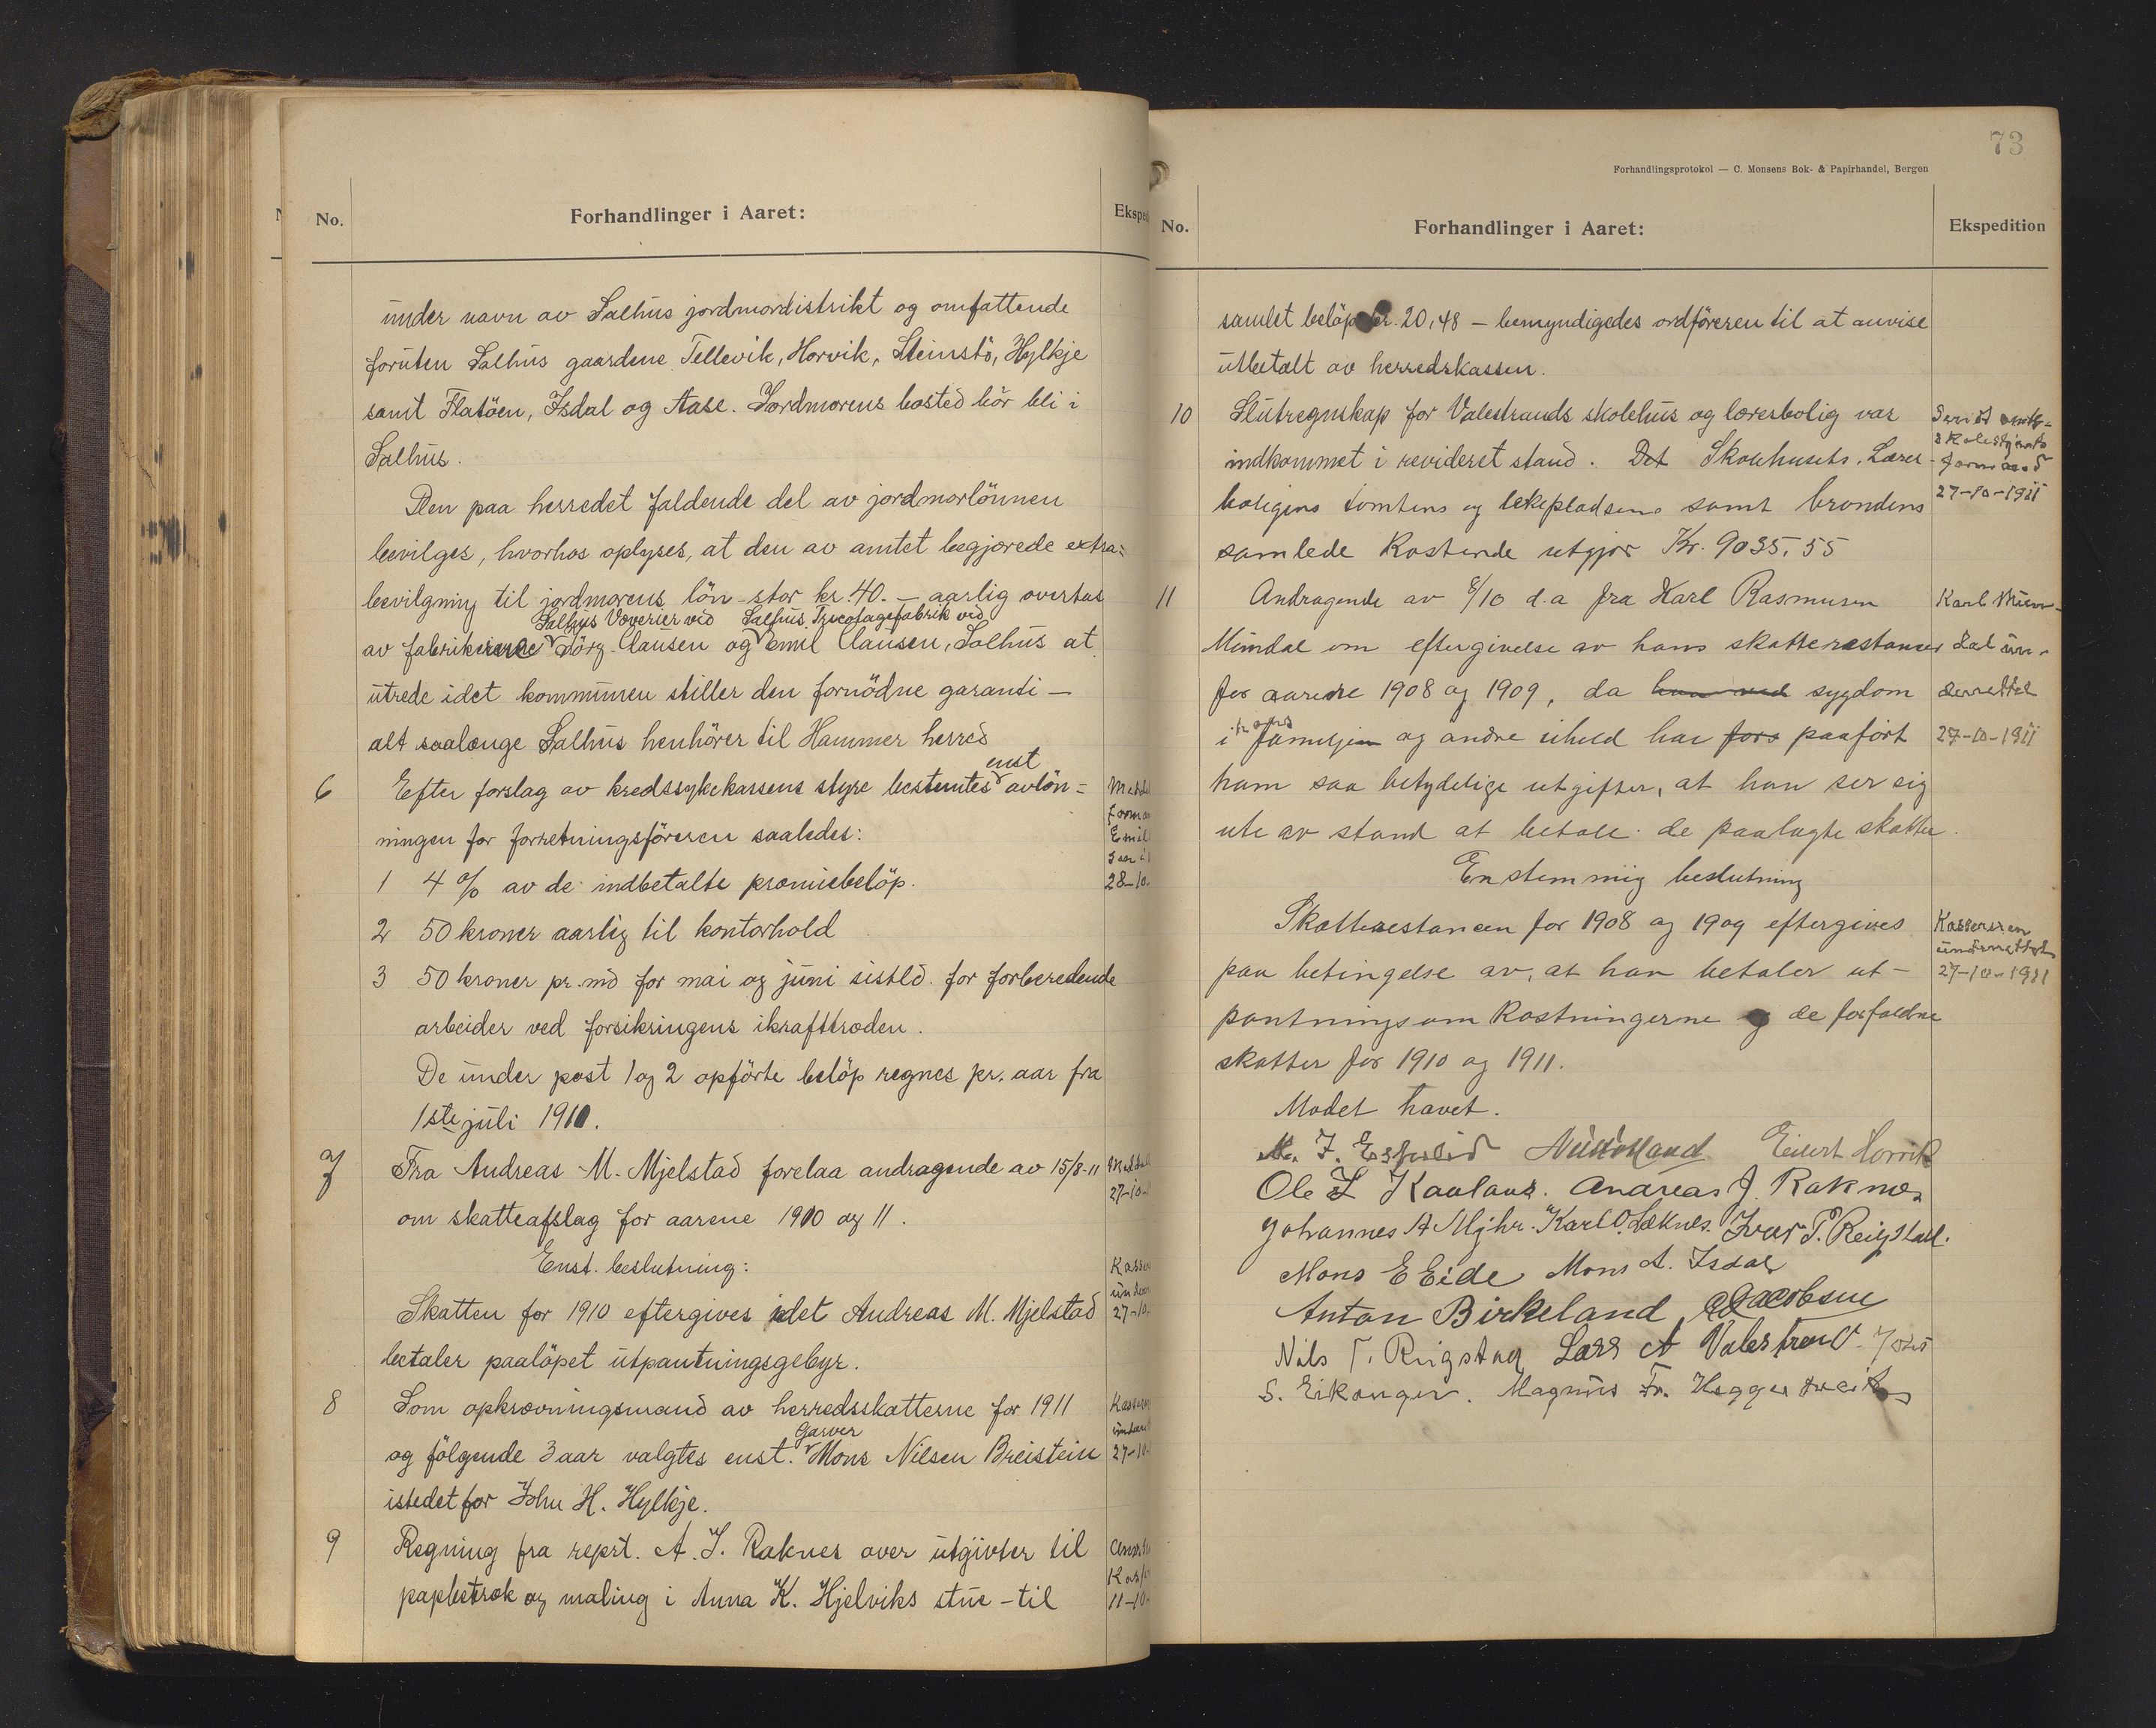 No.
Forhandlinger i Aaret:
under navn av Salhus jordmordistrikt og omfattende
foruten Salhus gaardene Tellevik, Horvik, Steinstö, Hylkje
samt Flatöen, Isdal og Aase. Jordmorens bosted bör bli i
Salhus.
Den paa herredet faldende del av jordmorlönnen
bevilges, hvorhos oplyses, at den av amtet begjærede extra=
bevilgning til jordmorens lön - stor kr. 40. - aarlig overtas
Salhus Væverier ved Salhus Tricotagefabrik ved
av fabrikerne Jörg. Clausen og emil Clausen, Salhus at
utrede idet kommunen stiller den fornödne garanti -
alt saalænge Salhus henhörer til Hammer herred
enst
6 Efter forslag av kredssykekassens styre bestemtes avlön=
ningen for forretningsföreren saaledes:
1 4 % av de indbetalte præmiebelöp.
2 50 kroner aarlig til kontorhold
3 50 kroner pr. md for mai og juni sistld. for forberedende
arbeider ved forsikringens ikrafttræden.
De under post 1 og 2 opförte belöp regnes pr. aar fra
1ste juli 1911.
28-10-
7 Fra Andreas M. Mjelstad forelaa andragende av 15/8-11
om skatteafslag for aarene 1910 og 11.
27-10-
Enst. beslutning:
Skatten for 1910 eftergives idet Andreas M. Mjelstad
betaler paalöpet utpantningsgebyr.
27-10-
8 Som opkrævningsmand av herredsskatterne for 1911
Garver
og fölgende 3 aar valgtes enst. Mons Nilsen Breistein
istedet for John H. Hylkje.
27-10-
9 Regning fra reprt. A. J. Raknes over utgivter til
papbetræk og maling i Anna K. Hjelviks stue - til
11-10-
73
Forhandlingsprotokol — C. Monsens Bok- & Papirhandel, Bergen
No.
Forhandlinger i Aaret:
Ekspedition
samlet belöp kr. 20,48 - bemyndigedes ordföreren til at anvise
utbetalt av herredskassen.
10 Slutregnskap for Valestrands skolehus og lærerbolig var
indkommet i revideret stand. Det Skolehusets, Lærer-
boligens tomtens og lekepladsens samt brøndens
samlede Kostende utgjør Kr. 9035,55
Sendt amts-
skolestyrets
formand
27-10-1911
11 Andragende av 8/10 d.a fra Karl Rasmusen
Mundal om eftergivelse av hans skatterestancer
for aarene 1908 og 1909, da han ved sygdom
i hans familjen og andre uheld har fors paaført
ham saa betydelige utgifter, at han ser sig
ute av stand at betale de paalagte skatter.
Karl Mun-
dal un-
derrettet
27-10-1911
Enstemmig beslutning
Skatterestancen for 1908 og 1909 eftergives
paa betingelse av, at han betaler ut-
pantningsomkostningerne og de forfaldne
skatter for 1910 og 1911.
Kassereren
underrettet
27-10-1911
Mødet hævet.
Eilert Horvik
Ole L Andreas J. Raknes
Johannes H Karl O. Ivar T. Reigstad.
Mons E Eide Mons A. Isdal
Anton Birkeland Jacobsen
Nils T. Reigstad Lars A Valestrand
S. Eikanger. Magnus Fr.